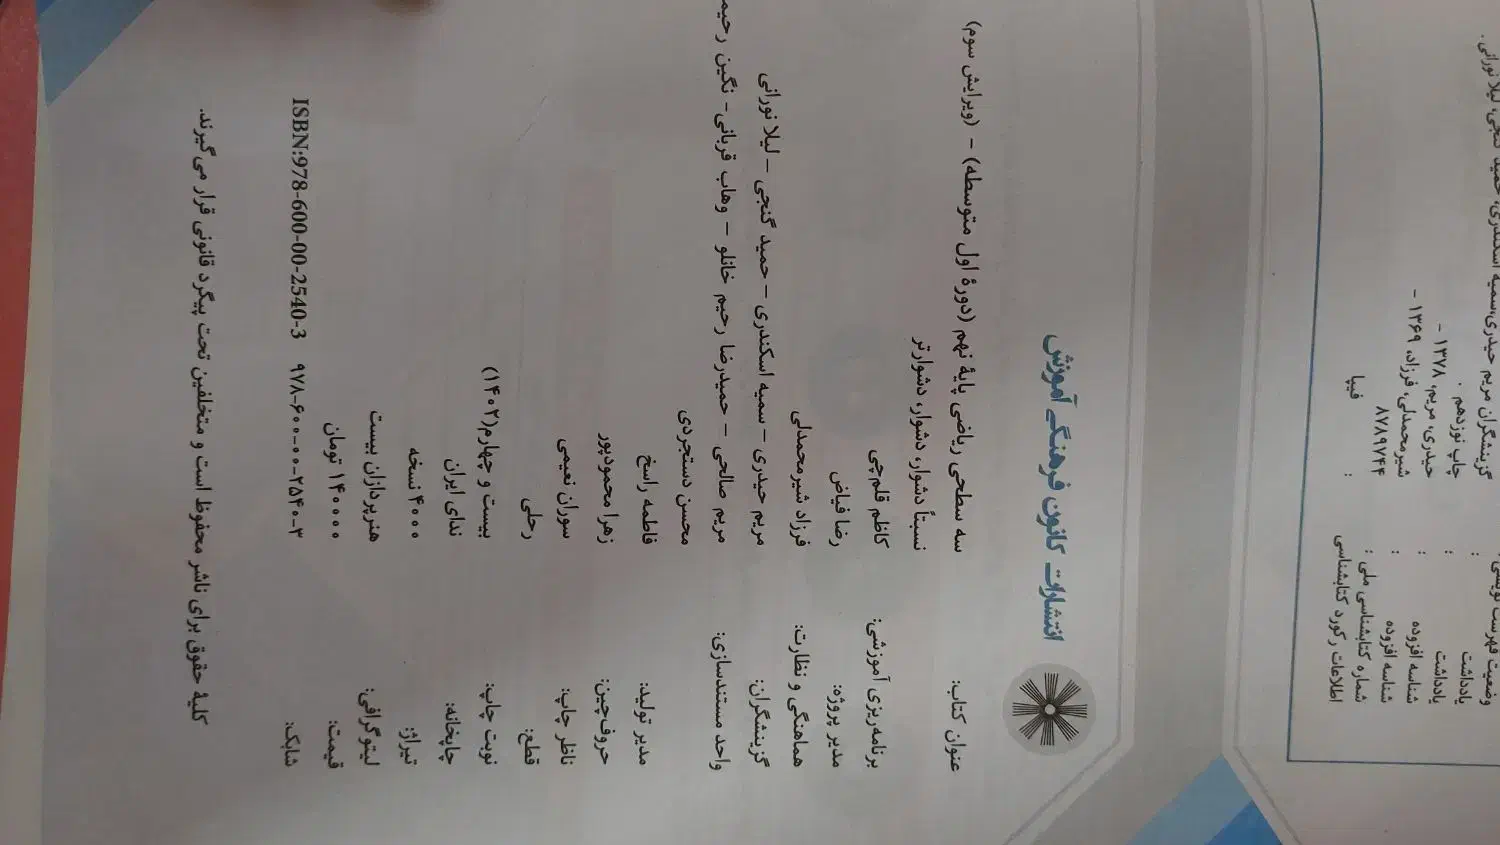 گزینشگران مریم حیدری،سمیه اسکندری، حمید گنجی، لیلا نورانی.
وضعیت فهرست نویسی :
یادداشت : چاپ نوزدهم .
یادداشت : حیدری، مریم، ۱۳۷۸ -
شناسه افزوده : شیرمحمدلی، فرزاد، ۱۳۶۹ -
شناسه افزوده :
شماره کتابشناسی ملی : ۸۷۸۹۷۴۴
اطلاعات رکورد کتابشناسی : فیپا
انتشارات کانون فرهنگی آموزش
عنوان کتاب: سه سطحی ریاضی پایهٔ نهم (دورهٔ اول متوسطه) - (ویرایش سوم)
نسبتاً دشوار، دشوار، دشوارتر
برنامه‌ریزی آموزشی: کاظم قلم‌چی
مدیر پروژه: رضا فیاض
هماهنگی و نظارت: فرزاد شیرمحمدلی
گزینشگران: مریم حیدری - سمیه اسکندری - حمید گنجی - لیلا نورانی
واحد مستندسازی: مریم صالحی - حمیدرضا رحیم خانلو - وهاب قربانی - نگین
محسن دستجردی
مدیر تولید: فاطمه راسخ
حروف‌چین: زهرا محمودپور
ناظر چاپ: سوران نعیمی
قطع: رحلی
نوبت چاپ: بیست و چهارم(۱۴۰۲)
چاپخانه: ندای ایران
تیراژ: ۴۰۰۰ نسخه
لیتوگرافی: هنرپردازان بیست
قیمت: ۱۴۰۰۰۰ تومان
شابک: ۹۷۸-۶۰۰-۰۰-۲۵۴۰-۳ ISBN:978-600-00-2540-3
کلیهٔ حقوق برای ناشر محفوظ است و متخلفین تحت پیگرد قانونی قرار می‌گیرند.